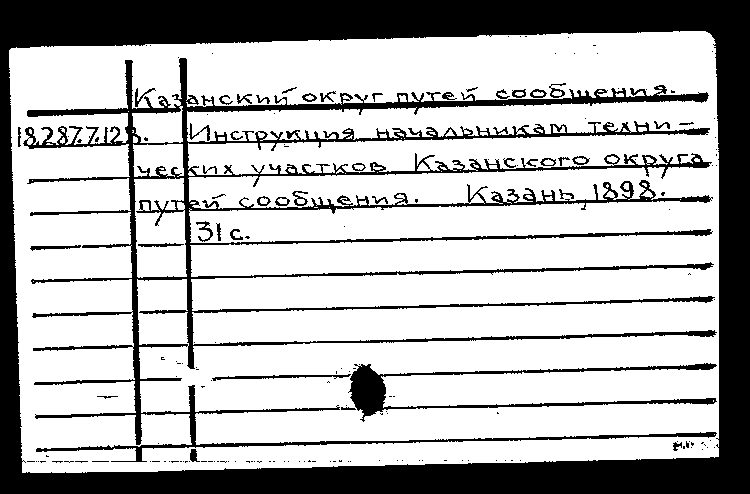 Казанский округ путей сообщения.
18.287.7.128. Инструкция начальникам техни-
ческих участков Казанского округа
путей сообщения. Казань, 1898.
31 с.